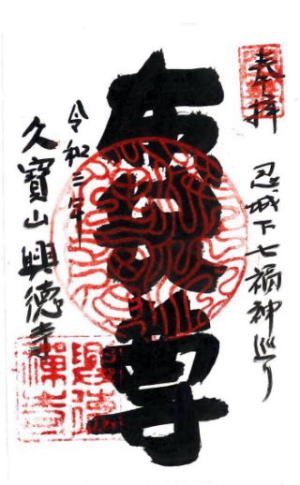 奉拝
忍城下七福神巡り
布袋尊
令和三年
久寳山興徳寺
興徳禅寺